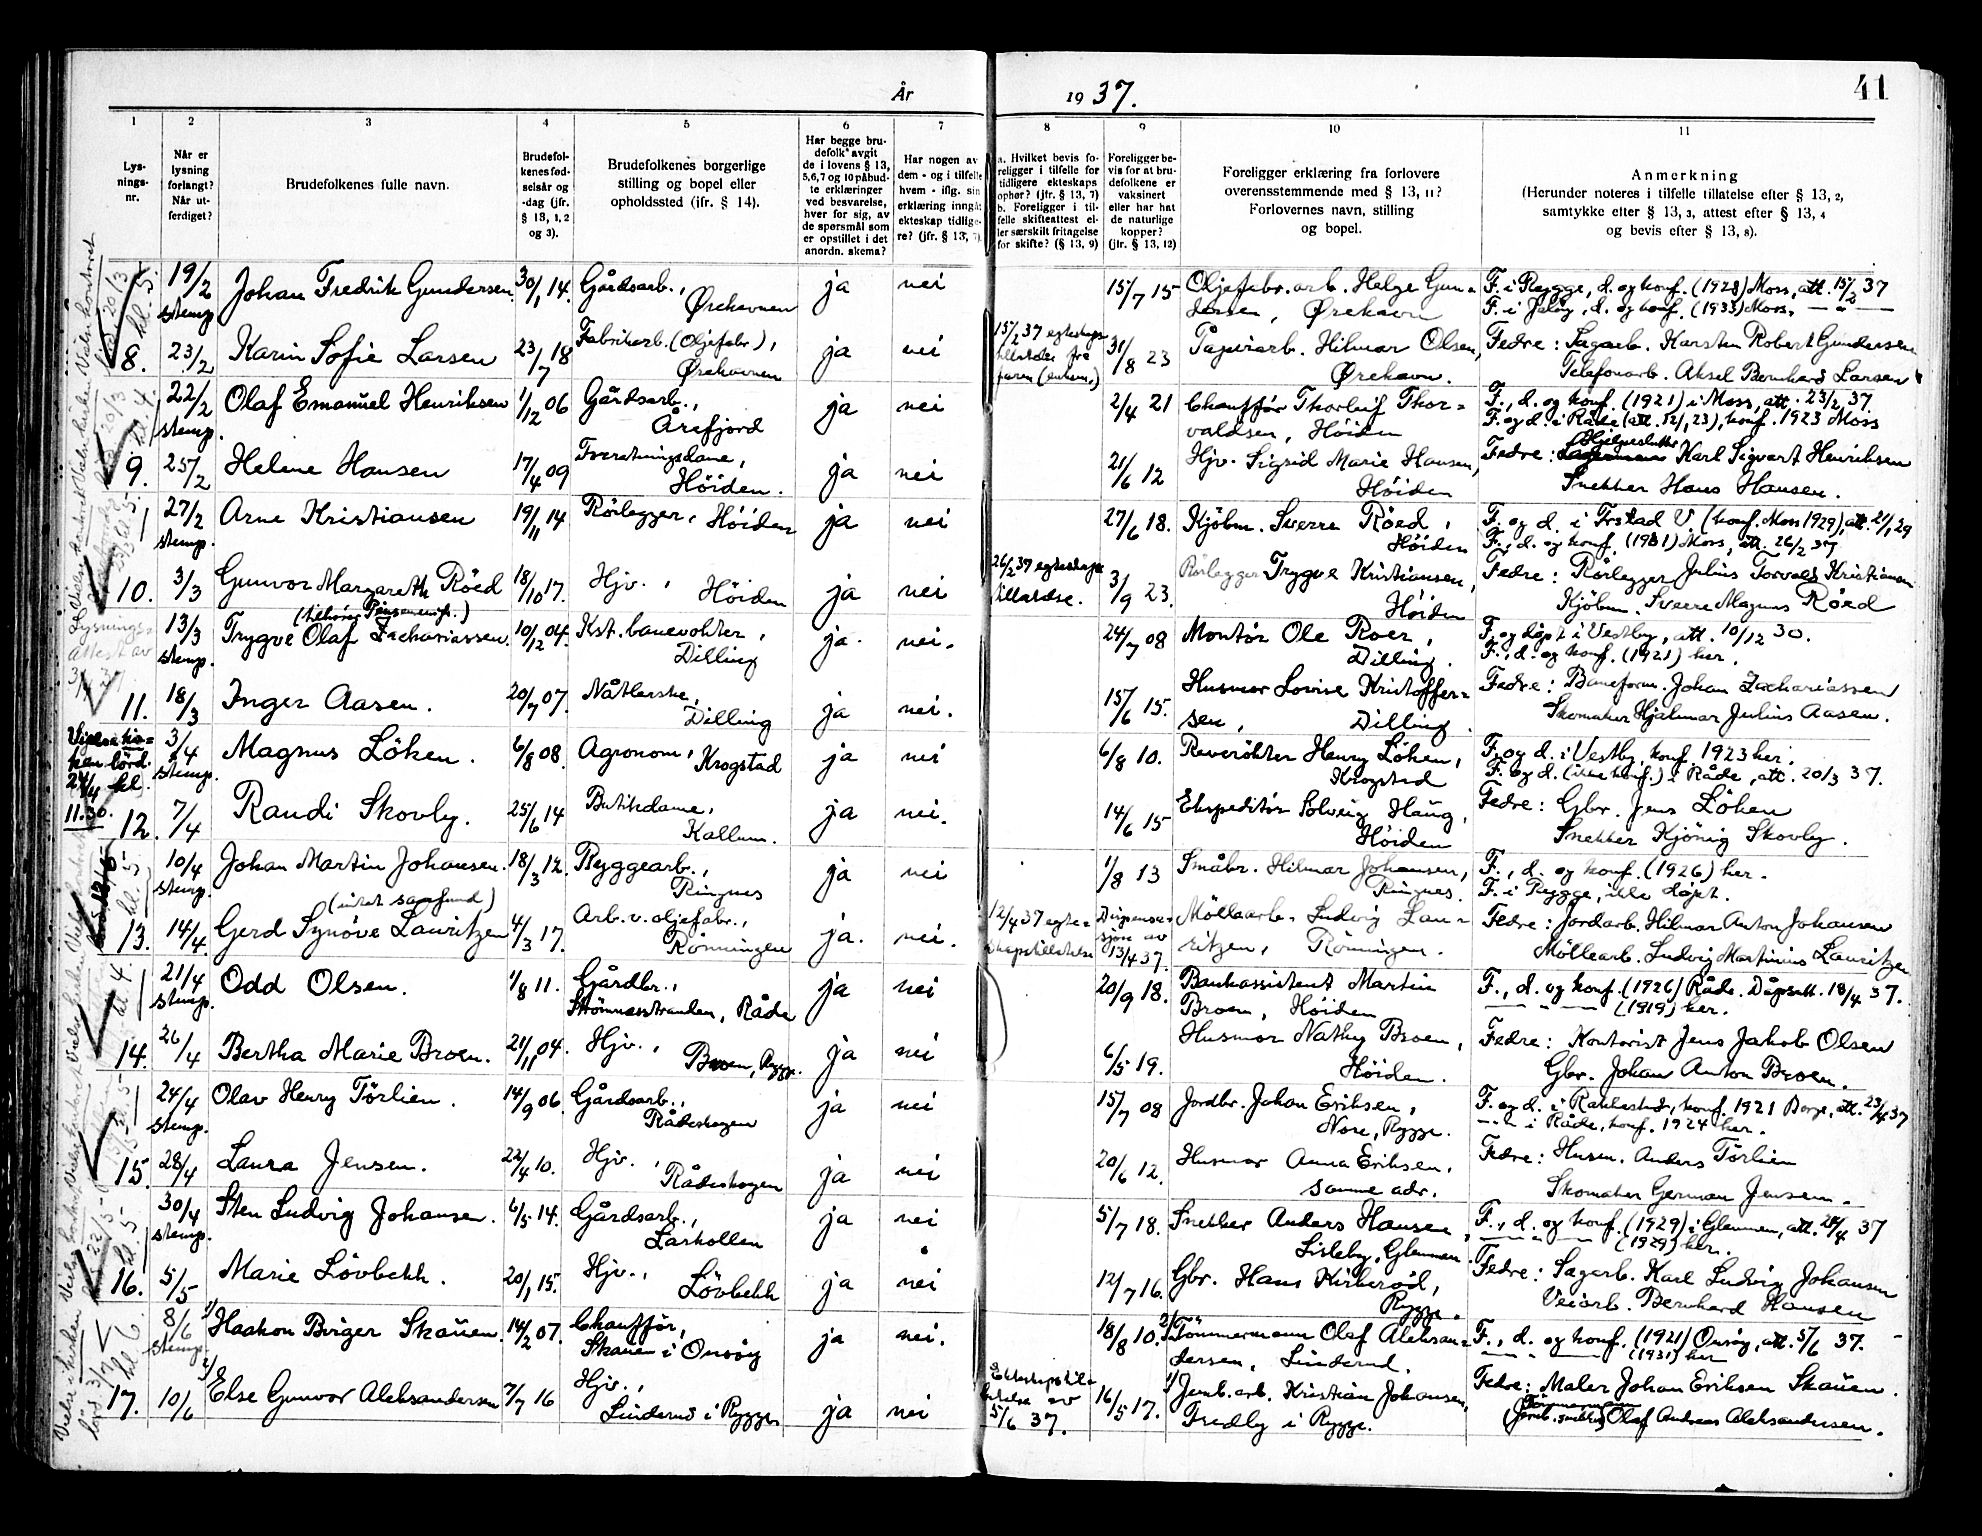 År
19 37.
41
1
2
3
4
5
6
7
8
9
10
11
Lys-
nings-
nr.
Når er
lysning
forlangt?
Når ut-
ferdiget?
Brudefolkenes fulle navn.
Brudefol-
kenes fød-
selsår og
-dag (jfr.
§ 13, 1, 2
og 3).
Brudefolkenes borgerlige
stilling og bopel eller
opholdssted (jfr. § 14).
Har begge bru-
defolk avgit
de i lovens § 13,
5, 6, 7 og 10 påbud-
te erklæringer
ved besvarelse,
hver for sig, av
de spørsmål som
er opstillet i det
anordn. skema?
Har nogen av
dem - og i tilfelle
hvem - iflg. sin
erklæring inngåt
ekteskap tidlige-
re? (jfr. § 13, 7)
a. Hvilket bevis fo-
religger i tilfelle for
tidligere ekteskaps
ophør? (jfr. § 13, 7)
b. Foreligger i til-
felle skifteattest el-
ler særskilt fritagelse
for skifte? (§ 13, 9)
Foreligger be-
vis for at bru-
defolkene er
vaksinert
eller har hat
de naturlige
kopper?
(jfr. § 13, 12)
Foreligger erklæring fra forlovere
overensstemmende med § 13, 11?
Forlovernes navn, stilling
og bopel.
Anmerkning
(Herunder noteres i tilfelle tillatelse efter § 13, 2,
samtykke efter § 13, 3, attest efter § 13, 4
og bevis efter § 13, 8).
19/2 Johan Fredrik Gundersen 30/1 14. Gårdsarb., ja nei 15/7 15 Oljefabr.arb. Helge Gun- F. i Rygge, d. og konf. (1928) Moss, att. 15/2 37
stemp. Ørehavnen dersen, Ørehavn F. i Jeløy, d. og konf. (1933) Moss, — " —
8. 23/2 Karin Sofie Larsen 23/7 18 Fabrikarb. (Oljefabr), ja nei 15/2 37 egteskaps 31/8 23 Papirarb. Hilmar Olsen, Fedre: Sagarb. Karsten Robert Gundersen
Ørehavnen tillatelse fra Ørehavn. Telefonarb. Aksel Bernhard Larsen
22/2 Olaf Emanuel Henriksen 1/12 06 Gårdsarb., ja nei 2/4 21 Chauffør Thorleif Thor- F., d. og konf. (1921) i Moss, att. 23/2 37.
stemp. Årefjord valdsen, Höiden F. og d. i Råde (att. 12/1 23), konf. 1923 Moss
9. 25/2 Helene Hansen 17/4 09 Forretningsdame, ja nei 21/6 12 Hjv. Sigrid Marie Hansen, Fedre: Karl Sigvart Henriksen
Höiden. Höiden Snekker Hans Hansen.
27/2 Arne Kristiansen 19/11 14 Rörlegger, Höiden ja nei 27/6 18. Kjöbm. Sverre Röed, F. og d. i Trstad V. (konf. Moss 1929), att. 21/1 29
stemp. Höiden F., d. og konf. (1931) Moss, att. 26/2 37
10. 3/3 Gunvor Margareth Röed 18/10 17. Hjv., Höiden ja nei 26/2 37 egteskaps 3/9 23. Rörlegger Trygve Kristiansen, Fedre: Rörlegger Julius Torvald Kristiansen
tillatelse. Höiden Kjöbm. Sverre Magnus Röed
(tilhører Pinsemenigh.)
13/3 Trygve Olaf Zachariassen 10/12 04. Kst. banevokter, ja. nei. 24/7 08 Montör Ole Roer, F. og döpt i Vestby, att. 10/12 30.
stemp. Dilling Dilling. F., d. og konf. (1921) her.
11. 18/3 Inger Aasen. 20/7 07. Nåtlerske, ja nei. 15/6 15. Husmor Lovise Kristoffer- Fedre: Baneform. Johan Zachariassen
Dilling sen, Dilling. Skomaker Hjalmar Julius Aasen.
3/4 Magnus Löken. 6/8 08. Agronom, Krogstad ja nei 6/8 10. Reverökter Henry Löken, F. og d. i Vestby, konf. 1923 her.
stemp. Krogstad F. og d. (ikke konf.) i Råde, att. 20/3 37.
12. 7/4 Randi Skovly. 25/6 14 Butikdame, ja nei. 14/6 15 Ekspeditör Solveig Haug, Fedre: Gbr. Jens Löken
Kallum. Höiden Snekker Kjönig Skovly.
10/4 Johan Martin Johansen. 18/3 12. Ryggearb., ja nei 1/8 13 Småbr. Hilmar Johansen, F., d. og konf. (1926) her.
stemp. (intet samfund) Ringnes Ringnes. F. i Rygge, ikke döpt.
13. 14/4. Gerd Synöve Lauritzen 4/3 17. Arb. v. oljefabr., ja. nei. 12/4 37 egte- Dispensa- Möllearb. Ludvig Lau- Fedre: Jordarb. Hilmar Anton Johansen
Rönningen skapstillatelse sjon av 13/4 37. ritzen, Rönningen. Möllearb. Ludvig Martinius Lauritzen
21/4 Odd Olsen. 1/8 11. Gårdbr., ja nei 20/9 18. Bankassistent Martin F., d. og konf. (1926) Råde. Dåpsatt. 18/4 37.
stemp. Strömnesstranden, Råde Broen, Höiden — " — (1919) her.
14. 26/4 Bertha Marie Broen. 21/11 04. Hjv., Broen, Rygge. ja nei 6/5 19. Husmor Nathy Broen, Fedre: Kontorist Jens Jakob Olsen
Höiden. Gbr. Johan Anton Broen.
24/4 Olav Henry Törlien. 14/9 06 Gårdsarb., ja nei 15/7 08 Jordbr. Johan Eriksen, F. og d. i Rakkestad, konf. 1921 Borge, att. 23/4 37
stemp. Rådeskogen Nore, Rygge. — " — i Råde, konf. 1924 her.
15. 28/4 Laura Jensen. 22/4 10. Hjv., ja nei 20/6 12. Husmor Anna Eriksen, Fedre: Husm. Anders Törlien
Rådeskogen samme adr. Skomaker German Jensen.
30/4 Sten Ludvig Johansen. 6/5 14. Gårdsarb., ja nei 5/7 18. Snekker Anders Hansen, F., d. og konf. (1929) i Glemmen, att. 28/4 37
stemp. Larkollen Lisleby, Glemmen — " — (1929) her.
16. 5/5 Marie Lövbekk. 20/1 15. Hjv., Lövbekk ja nei 12/7 16. Gbr. Hans Kirkeröd, Fedre: Sagarb. Karl Ludvig Johansen
Rygge. Veiarb. Bernhard Hansen
8/6 1/ Haakon Birger Skauen. 14/2 07. Chauffør, ja nei. 18/8 10. 2/ Tömmermann Olaf Aleksan- F., d. og konf. (1921) Onsöy, att. 5/6 37.
stemp. Skauen i Onsöy dersen, Linderud. — " — (1931) her
17. 10/6 2/ Else Gunvor Aleksandersen 7/7 16 Hjv., ja nei Ekteskapstil- 16/5 17. 1/ Jernb.arb. Kristian Johansen, Fedre: Maler Johan Eriksen Skauen.
Linderud i Rygge latelse av 5/6 37. Fredly i Rygge. Tömmermann Olaf Andreas Aleksandersen.